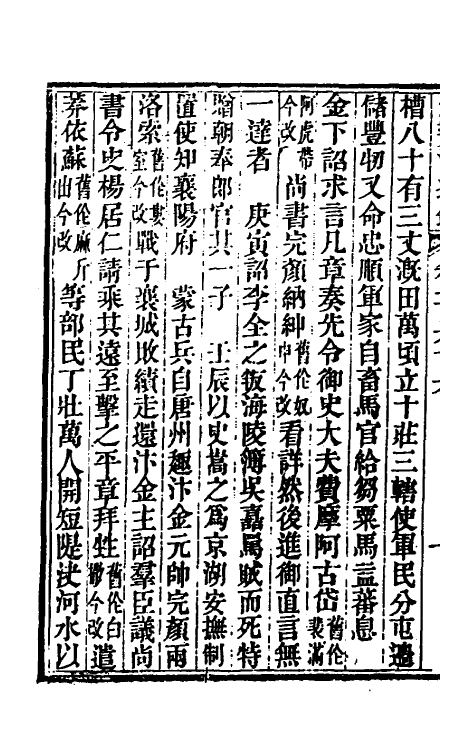 槽八十有三丈漑田萬頃立十莊三轄使軍民分屯邊
儲豐牣又命忠順軍家自畜馬官給芻粟馬益蕃息
金下詔求言凡章奏先令御史大夫費摩阿古岱舊倫裴滿
阿虎帶今改尚書完顔納紳舊倫奴申今改看詳然後進御直言無
一達者　庚寅詔李全之叛海陵簿吳嘉罵賊而死特
贈朝奉郎官其一子　壬辰以史嵩之爲京湖安撫制
置使知襄陽府　蒙古兵自唐州趣汴金元帥完顔兩
洛索舊倫婁室今改戰于襄城敗績走還汴金主詔羣臣議尚
書令史楊居仁請乘其遠至擊之平章拜牲舊倫白撒今改遣
莽依蘇舊倫麻斤出今改等部民丁壯萬人開短隄決河水以